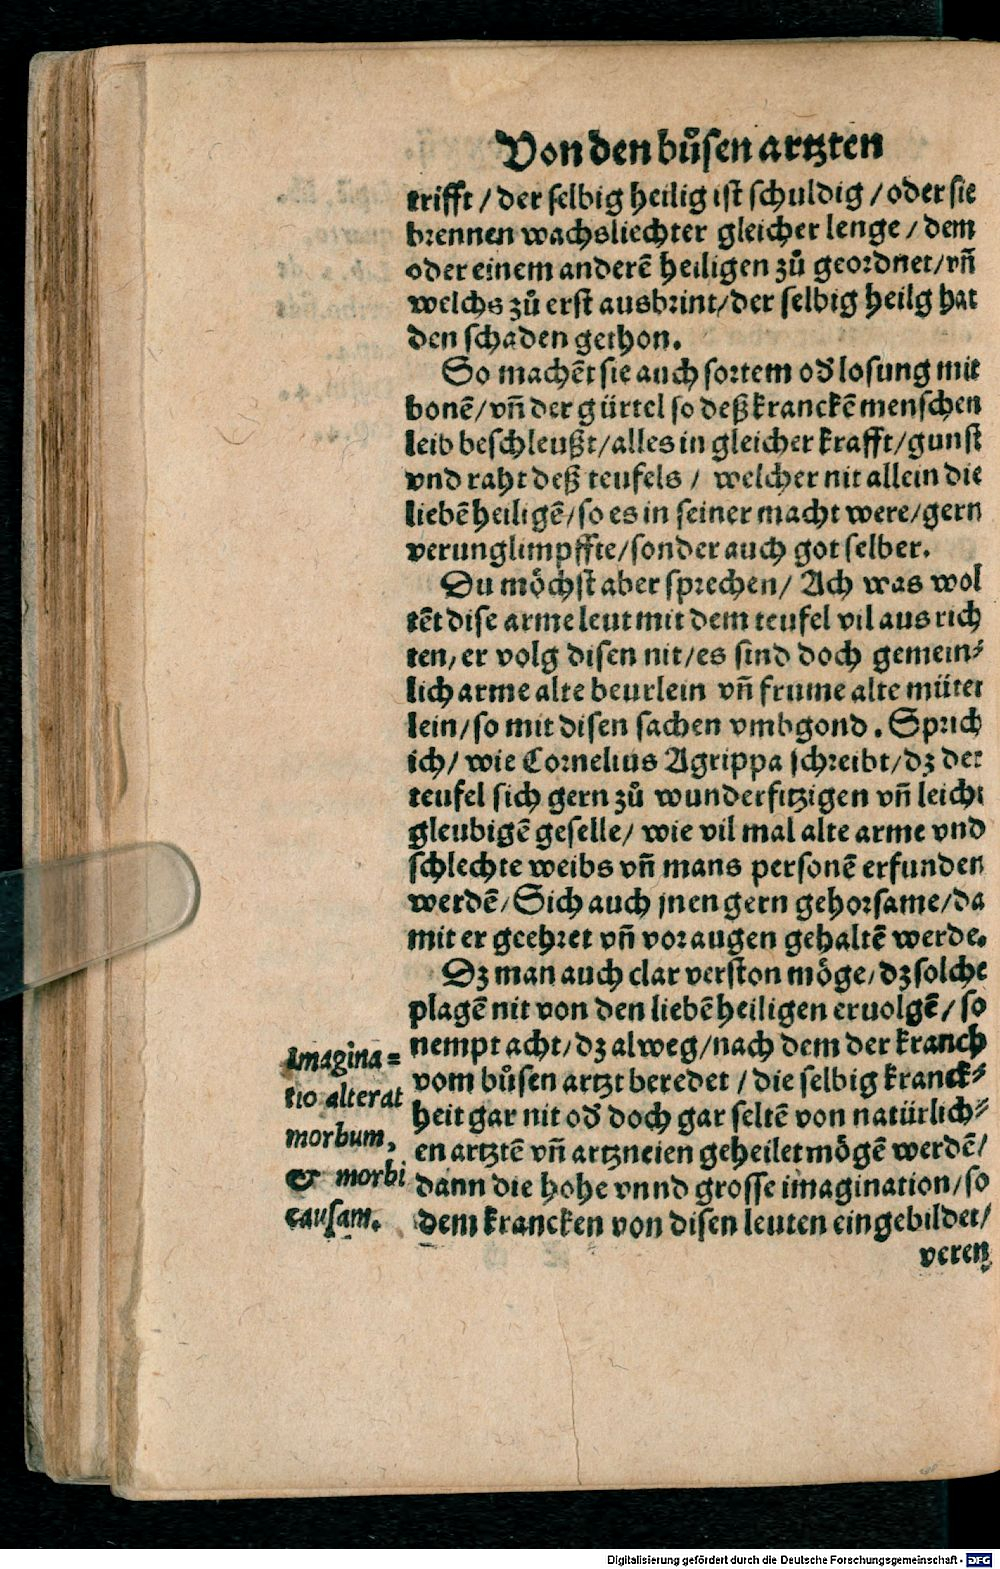 Von den bůsen artzten
trifft / der selbig heilig ist schuldig / oder sie
brennen wachsliechter gleicher lenge / dem
oder einem anderē heiligen zů geordnet / vñ
welchs zů erst ausbrint / der selbig heilg hat
den schaden gethon.
So machēt sie auch sortem od̄ losung mit
bonē / vñ der gürtel so deß kranckē menschen
leib beschleußt / alles in gleicher krafft / gunst
vnd raht deß teufels / welcher nit allein die
liebē heiligē / so es in seiner macht were / gern
verunglimpffte / sonder auch got selber.
Du möchst aber sprechen / Ach was wol
tēt dise arme leut mit dem teufel vil aus rich
ten, er volg disen nit / es sind doch gemein⸗
lich arme alte beurlein vñ frume alte müter
lein / so mit disen sachen vmbgond. Sprich
ich / wie Cornelius Agrippa schreibt / dz der
teufel sich gern zů wunderfitzigen vñ leicht
gleubigē geselle / wie vil mal alte arme vnd
schlechte weibs vñ mans personē erfunden
werdē / Sich auch jnen gern gehorsame / da
mit er geehret vñ vor augen gehaltē werde.
Dz man auch clar verston möge / dz solche
plagē nit von den liebē heiligen eruolgē / so
nempt acht / dz alweg / nach dem der kranch
vom bůsen artzt beredet / die selbig kranck⸗
heit gar nit od̄ doch gar seltē von natürlich⸗
en artztē vñ artzneien geheilet mögē werdē /
dann die hohe vnnd grosse imagination / so
dem krancken von disen leuten eingebildet /
veren
Imagina=
tio alterat
morbum,
& morbi
causam.
Digitalisierung gefördert durch die Deutsche Forschungsgemeinschaft - DFG